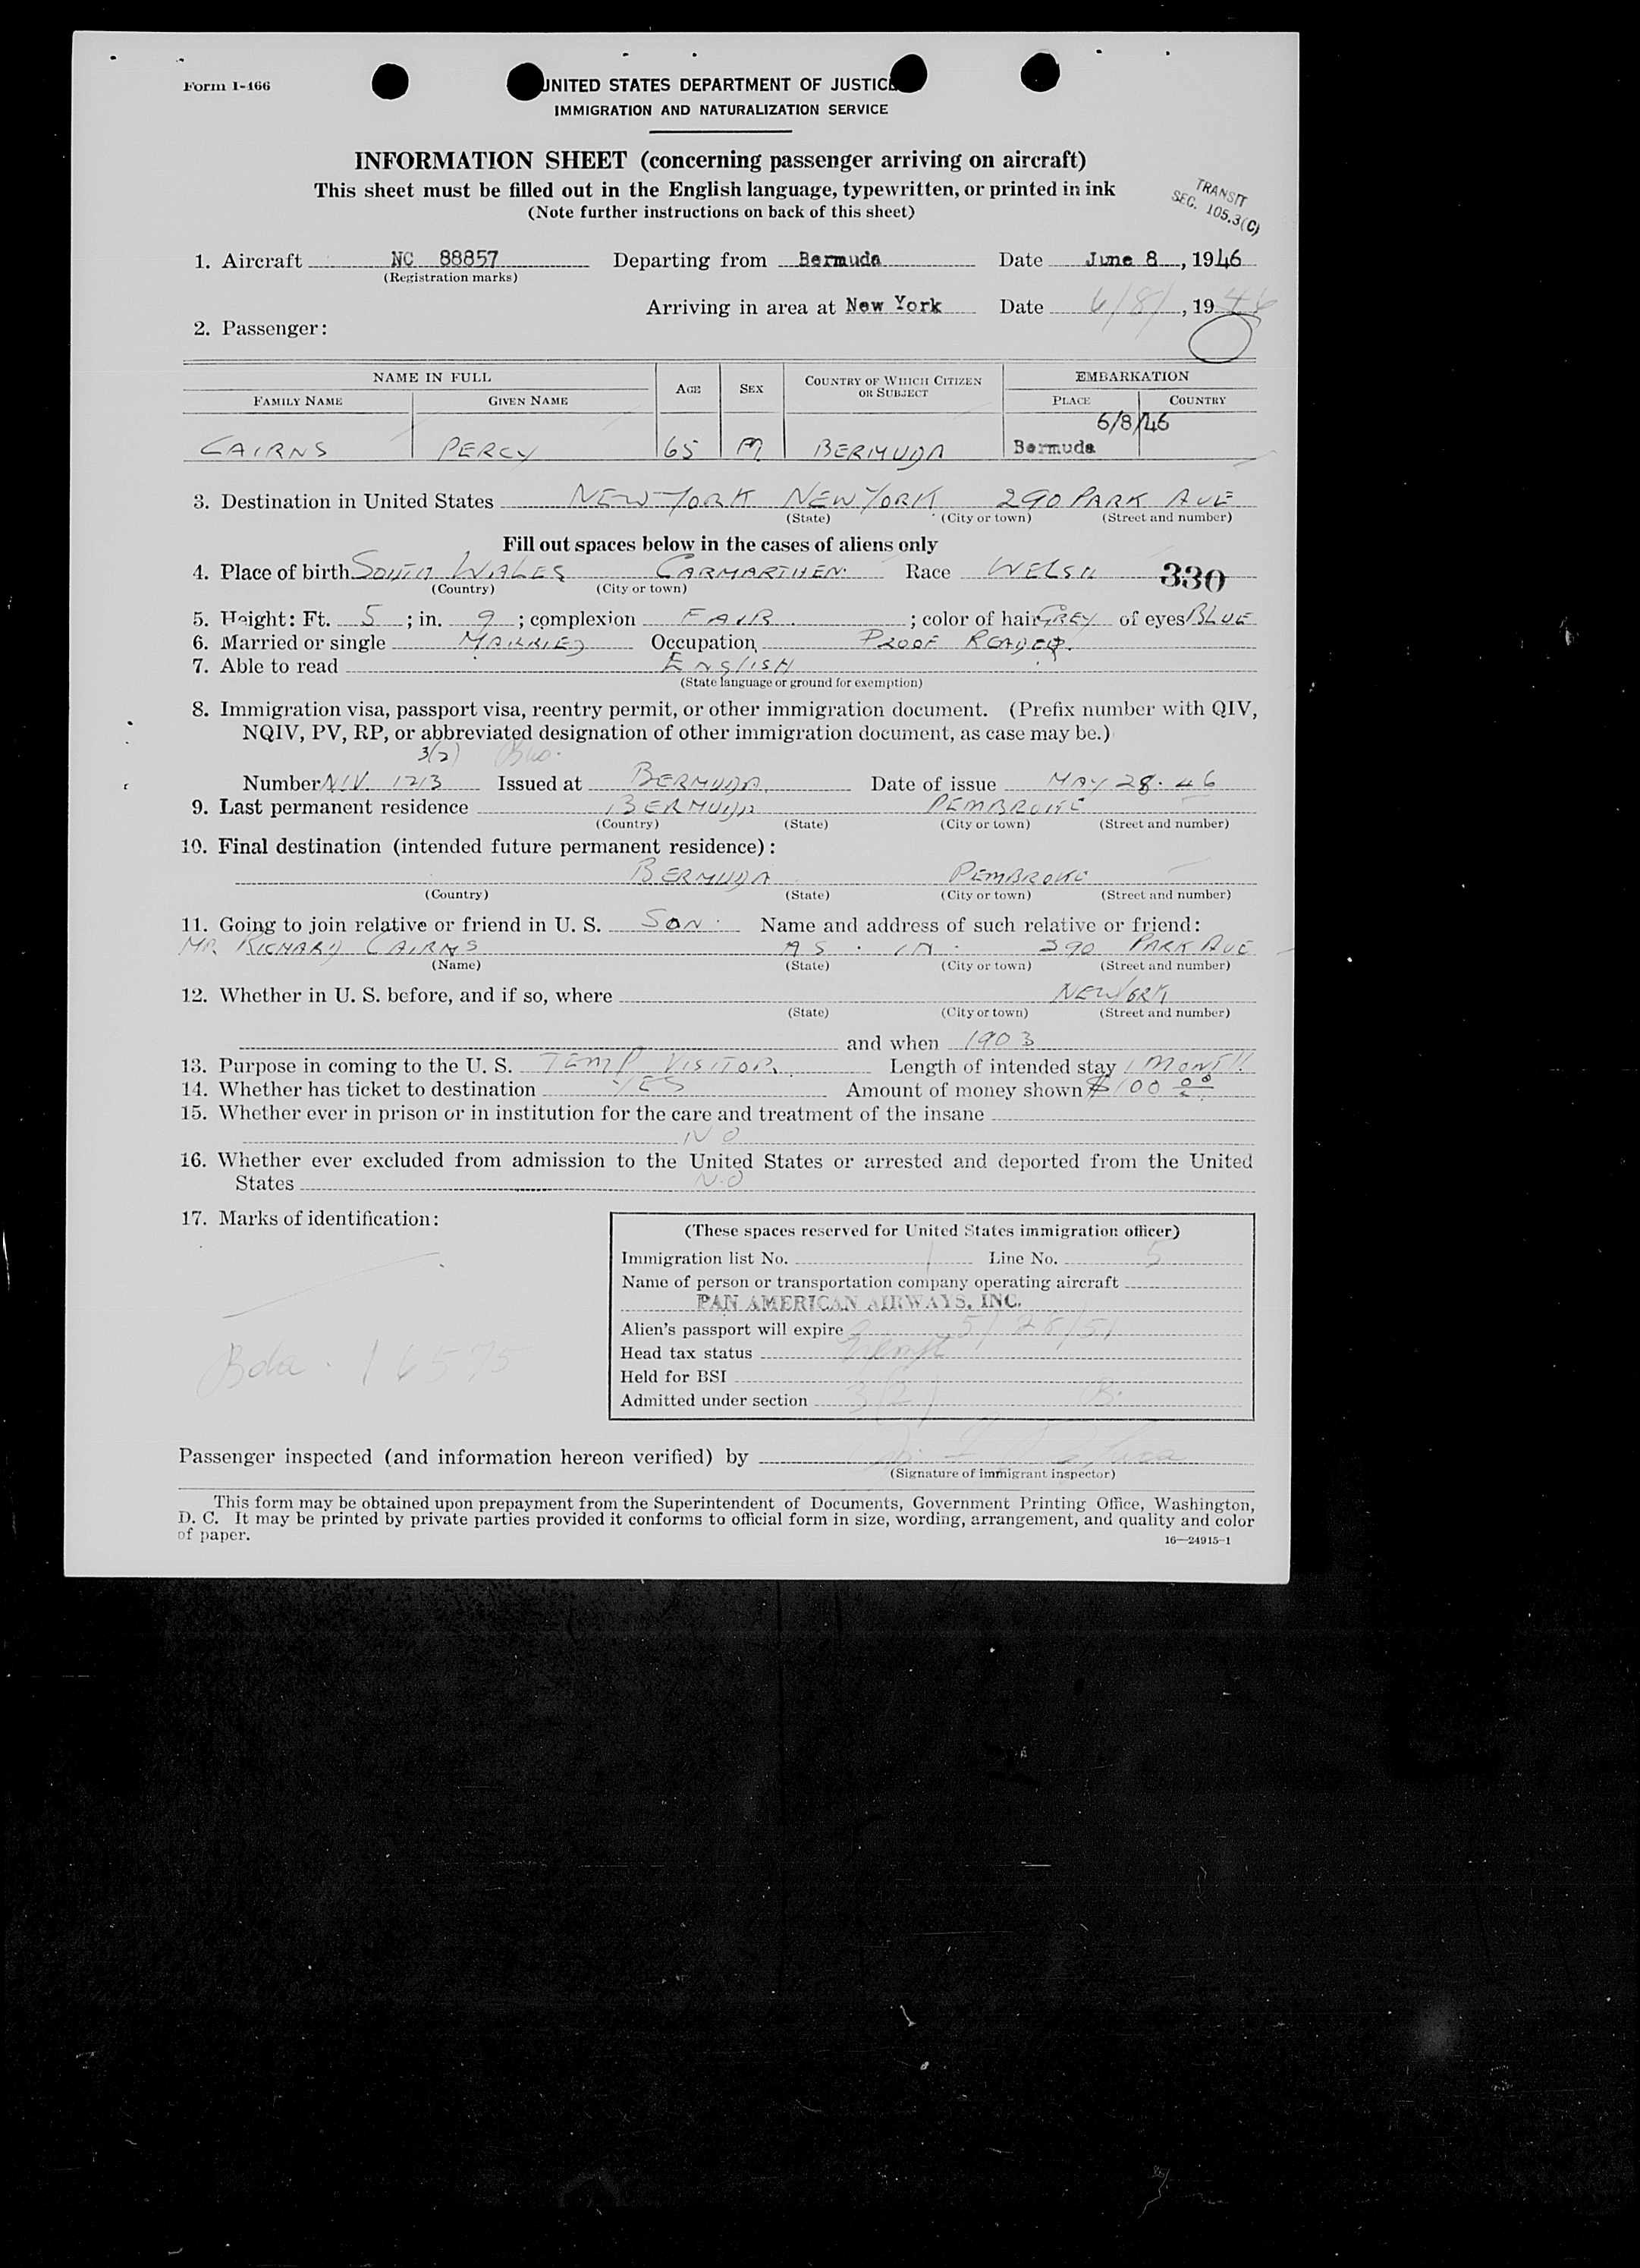 Form I-466
UNITED STATES DEPARTMENT OF JUSTICE
IMMIGRATION AND NATURALIZATION SERVICE
INFORMATION SHEET (concerning passenger arriving on aircraft)
This sheet must be filled out in the English language, typewritten, or printed in ink
(Note further instructions on back of this sheet)
TRANSIT
SEC. 105.3(C)
1. Aircraft NC 88857 Departing from Bermuda Date June 8, 1946
(Registration marks)
Arriving in area at New York Date 6/8/, 1946
2. Passenger:
NAME IN FULL AGE SEX COUNTRY OF WHICH CITIZEN OR SUBJECT EMBARKATION
FAMILY NAME GIVEN NAME PLACE COUNTRY
6/8/46
CAIRNS PERCY 65 M BERMUDA Bermuda
3. Destination in United States NEW YORK NEW YORK 290 PARK AVE
(State) (City or town) (Street and number)
Fill out spaces below in the cases of aliens only
4. Place of birth SOUTH WALES CARMARTHEN. Race WELSH 330
(Country) (City or town)
5. Height: Ft. 5; in. 9; complexion FAIR.; color of hair GREY of eyes BLUE
6. Married or single MARRIED Occupation PROOF READER.
7. Able to read ENGLISH
(State language or ground for exemption)
8. Immigration visa, passport visa, reentry permit, or other immigration document. (Prefix number with QIV,
NQIV, PV, RP, or abbreviated designation of other immigration document, as case may be.)
3(2)
Number NIV. 1213 Issued at BERMUDA. Date of issue MAY 28. 46
9. Last permanent residence BERMUDA PEMBROKE
(Country) (State) (City or town) (Street and number)
10. Final destination (intended future permanent residence):
BERMUDA PEMBROKE
(Country) (State) (City or town) (Street and number)
11. Going to join relative or friend in U. S. SON. Name and address of such relative or friend:
MR. RICHARD CAIRNS AS. IN. 290 PARK AVE
(Name) (State) (City or town) (Street and number)
12. Whether in U. S. before, and if so, where NEW YORK
(State) (City or town) (Street and number)
and when 1903
13. Purpose in coming to the U. S. TEMP VISITOR. Length of intended stay 1 MONTH.
14. Whether has ticket to destination YES Amount of money shown $100 00
15. Whether ever in prison or in institution for the care and treatment of the insane
NO
16. Whether ever excluded from admission to the United States or arrested and deported from the United
States N.O
17. Marks of identification:
Bda. 16575
(These spaces reserved for United States immigration officer)
Immigration list No. 1 Line No. 5
Name of person or transportation company operating aircraft
PAN AMERICAN AIRWAYS, INC.
Alien's passport will expire 5/28/51
Head tax status Exempt
Held for BSI
Admitted under section 3(2) B.
Passenger inspected (and information hereon verified) by
(Signature of immigrant inspector)
This form may be obtained upon prepayment from the Superintendent of Documents, Government Printing Office, Washington,
D. C. It may be printed by private parties provided it conforms to official form in size, wording, arrangement, and quality and color
of paper.
16—24915-1